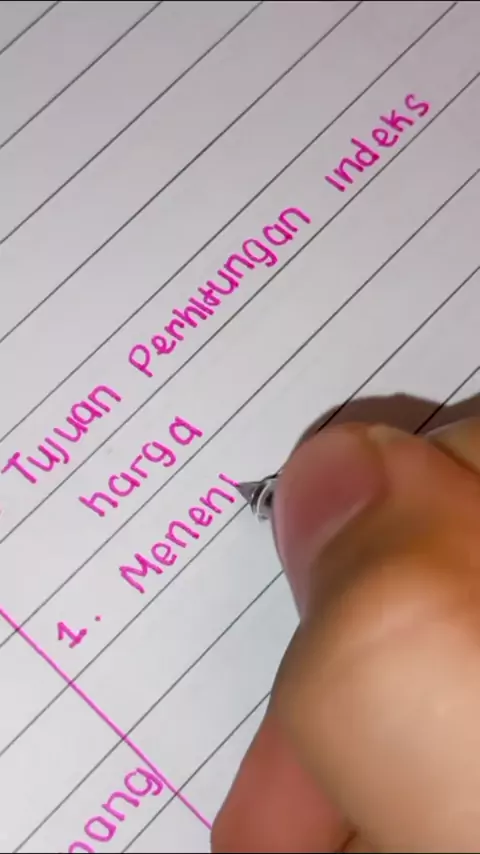 Tujuan Perhitungan indeks
harga
1. Menen
nang